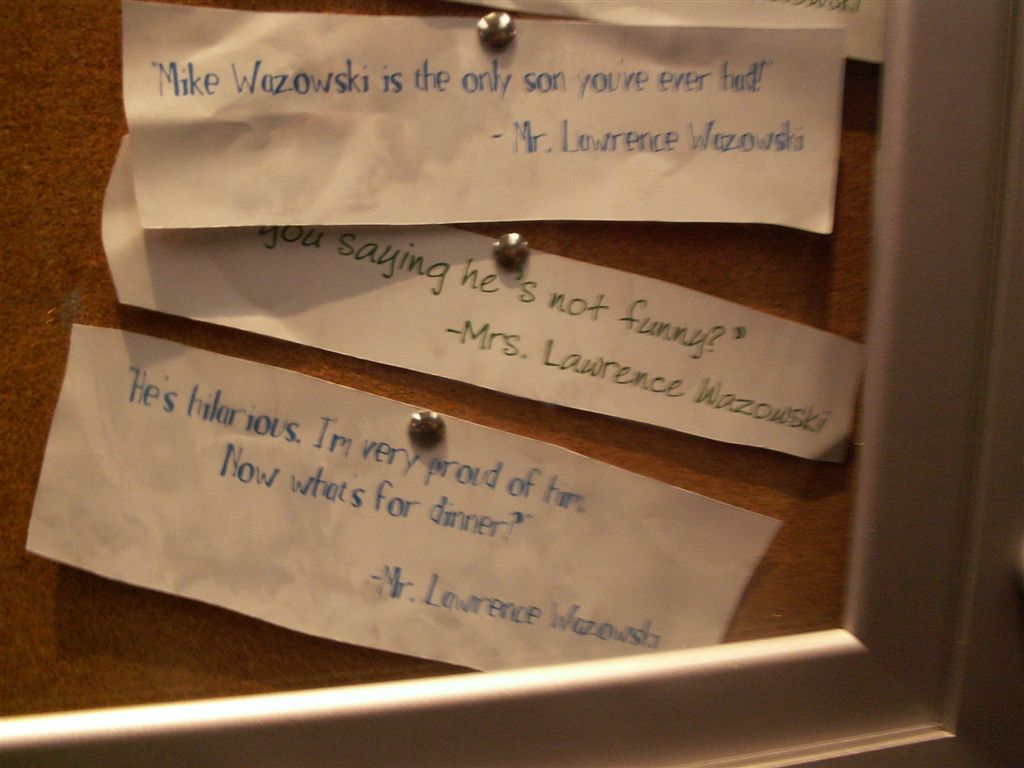 "Mike Wazowski is the only son you've ever had!"
- Mr. Lawrence Wazowski
you saying he's not funny?"
-Mrs. Lawrence Wazowski
"He's hilarious. I'm very proud of him.
Now what's for dinner?"
-Mr. Lawrence Wazowski